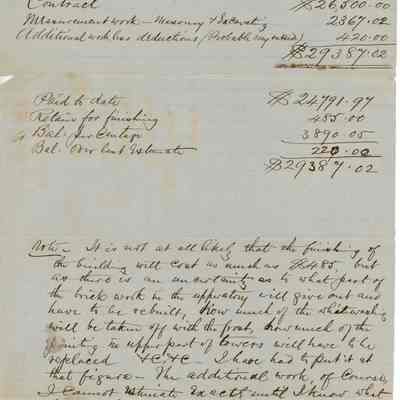 Contract $26,500.00
Measurement work - Masonry & Excavating 2367.02
Additional work less deductions (Probably my mixed) 420.00
$29387.02
Paid to date $24791.97
Retain for finishing 485.00
Bal. per centage 3890.05
Bal. Over last Estimate 220.00
$29387.02
Note - It is not at all likely that the finishing of
the building will cost as much as $485, but
as there is an uncertainty as to what part of
the brick work in the will give out and
have to be rebuilt, how much of the whitewashing
will be taken off with the frost, how much of the
pointing in upper part of towers will have to be
replaced &c &c. I have had to put it at
that figure - The additional work, of Course,
I cannot estimate exactly until I know what